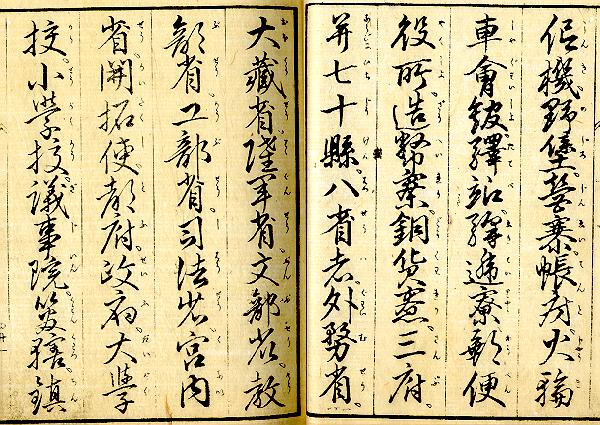 機野堡營寨帳房火輪
車會驛站驛遞寮郵便
役所造幣寮銅貨寮三府
并七十縣八省者外務省
大藏省陸軍省文部省教
部省工部省司法省宮内
省開拓使都府政府大學
校小學校議事院轄鎮